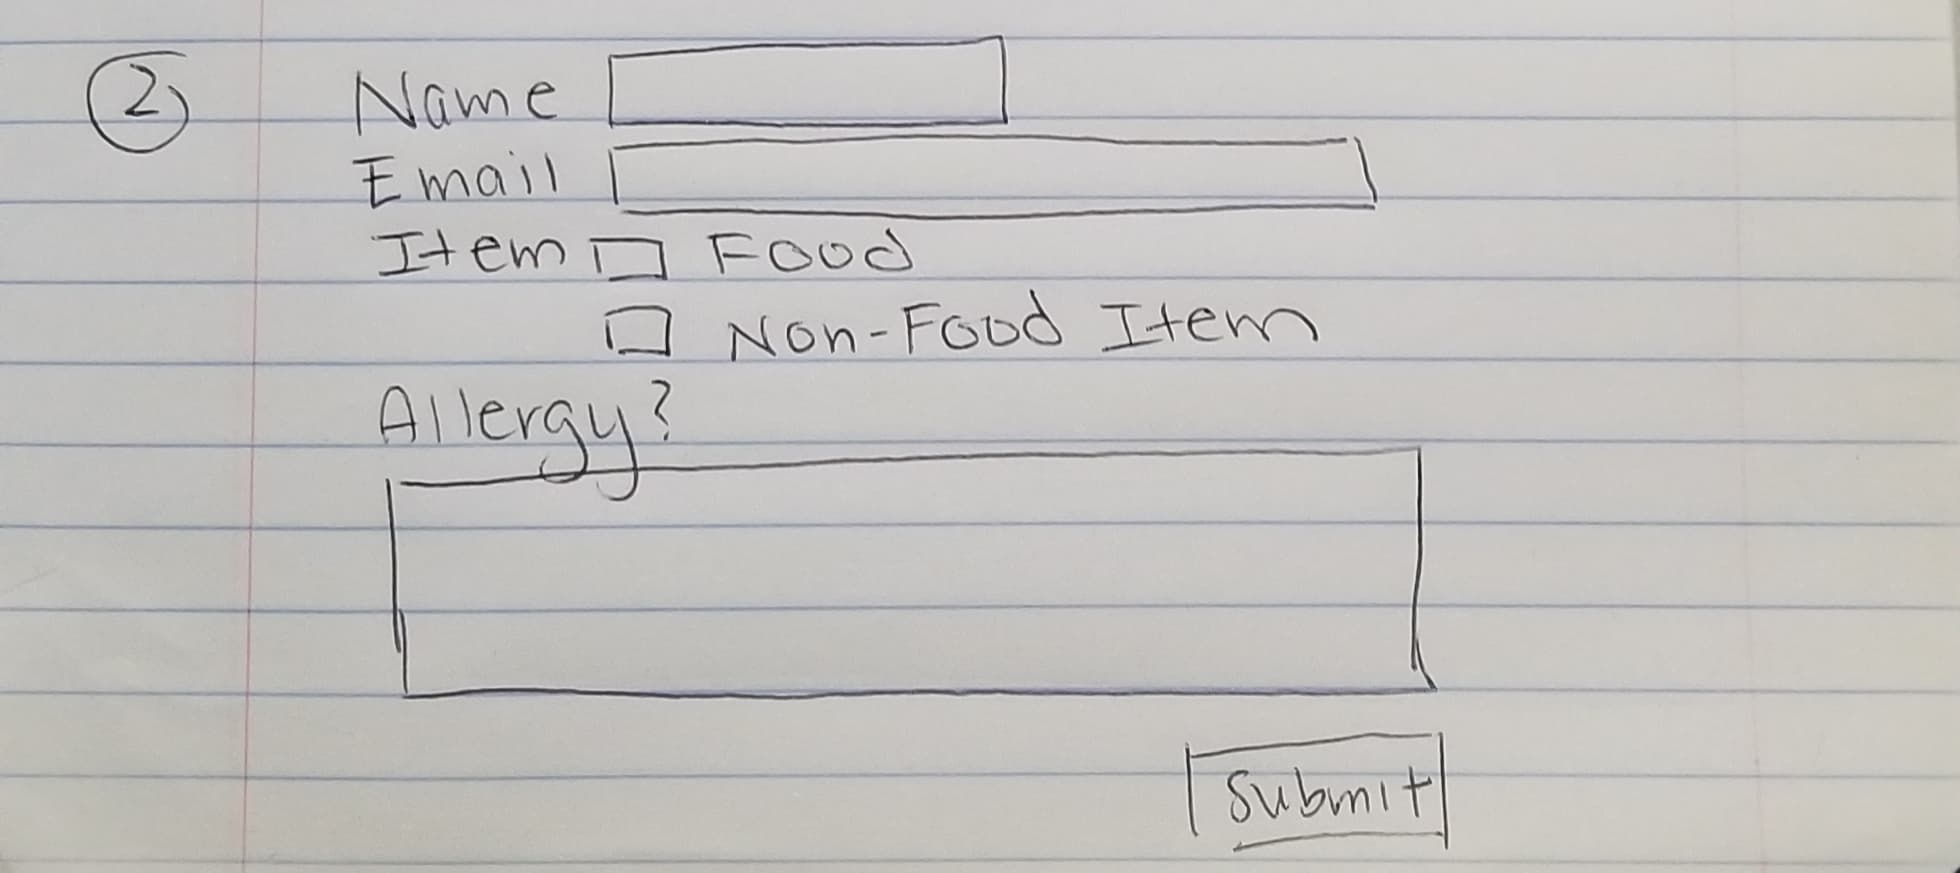 2 Name
Email
Item Food
Non-Food Item
Allergy?
Submit